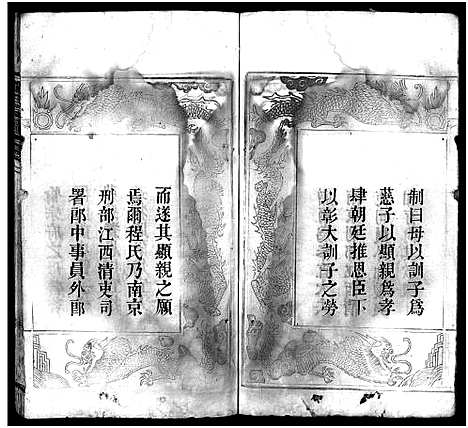 制曰母以訓子為
慈子以顯親為孝
肆朝廷推恩臣下
以彰大訓子之勞
而遂其顯親之願
焉爾程氏乃南京
刑部江西清吏司
署郎中事員外郎